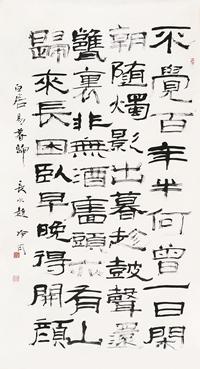 不覺百年半何曾一日閑
朝随燭影出暮趁鼓聲還
甕裏非無酒牆頭亦有山
歸來長困臥早晚得開顏
白居易暮歸 長水趙冷月